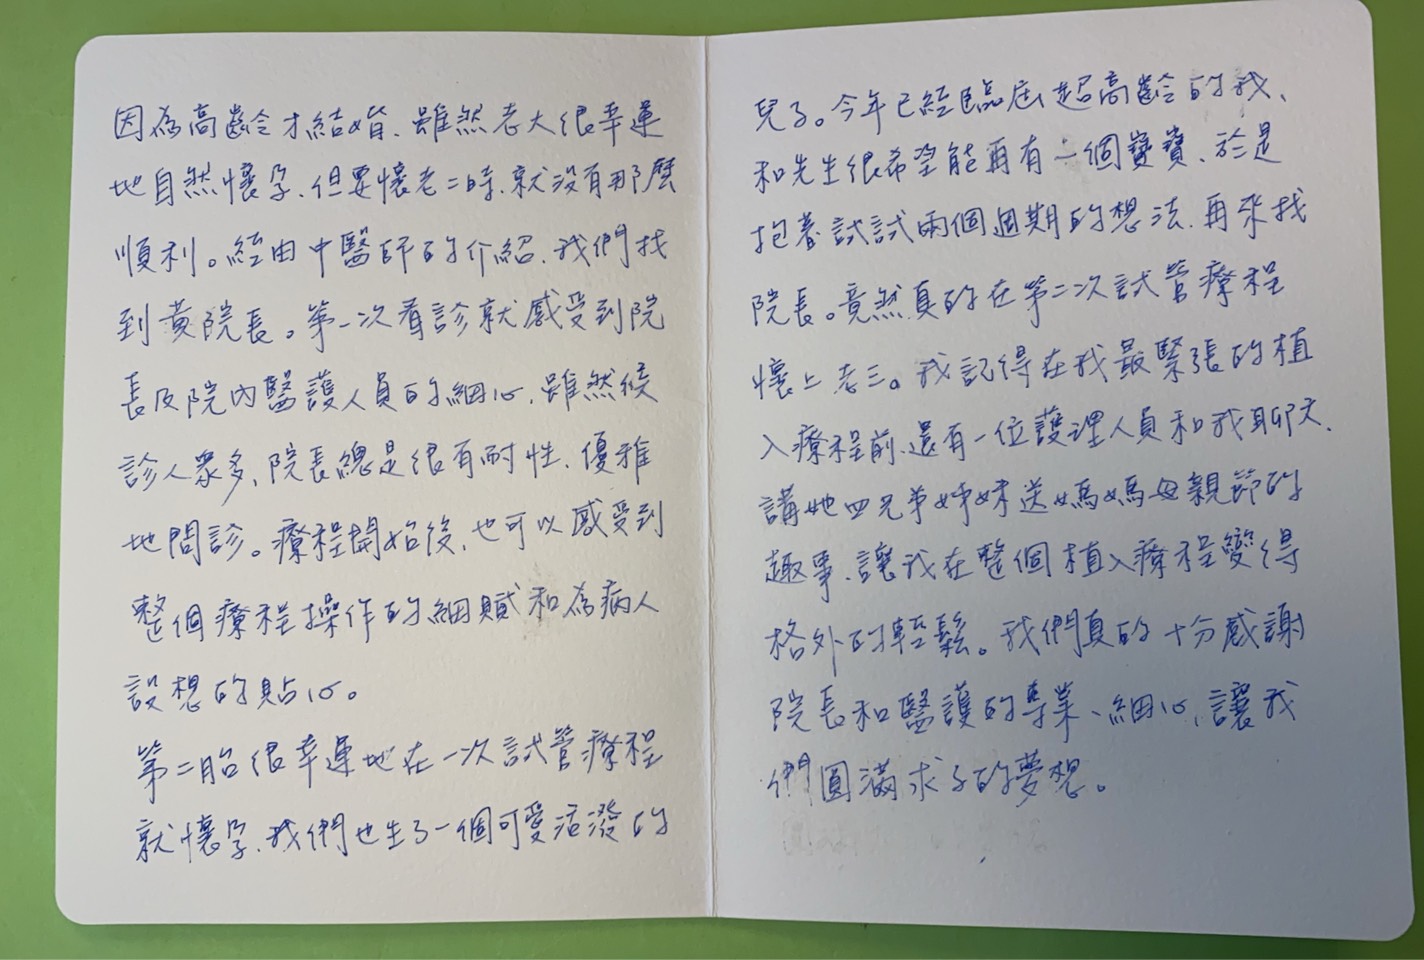 因為高齡才結婚、雖然老大很幸運
地自然懷孕、但要懷老二時、就沒有那麼
順利。經由中醫師的介紹、我們找
到黃院長。第一次看診就感受到院
長及院內醫護人員的細心、雖然候
診人眾多、院長總是很有耐性、優雅
地問診。療程開始後、也可以感受到
整個療程操作的細膩和為病人
設想的貼心。
第二胎很幸運地在一次試管療程
就懷孕、我們也生了一個可愛活潑的
兒子。今年已經臨屆超高齡的我、
和先生很希望能再有一個寶寶、於是
抱著試試兩個週期的想法、再來找
院長。竟然真的在第二次試管療程
懷上老三。我記得在我最緊張的植
入療程前、還有一位護理人員和我聊天、
講她四兄弟姊妹送媽媽母親節的
趣事、讓我在整個植入療程變得
格外的輕鬆。我們真的十分感謝
院長和醫護的專業、細心、讓我
們圓滿求子的夢想。